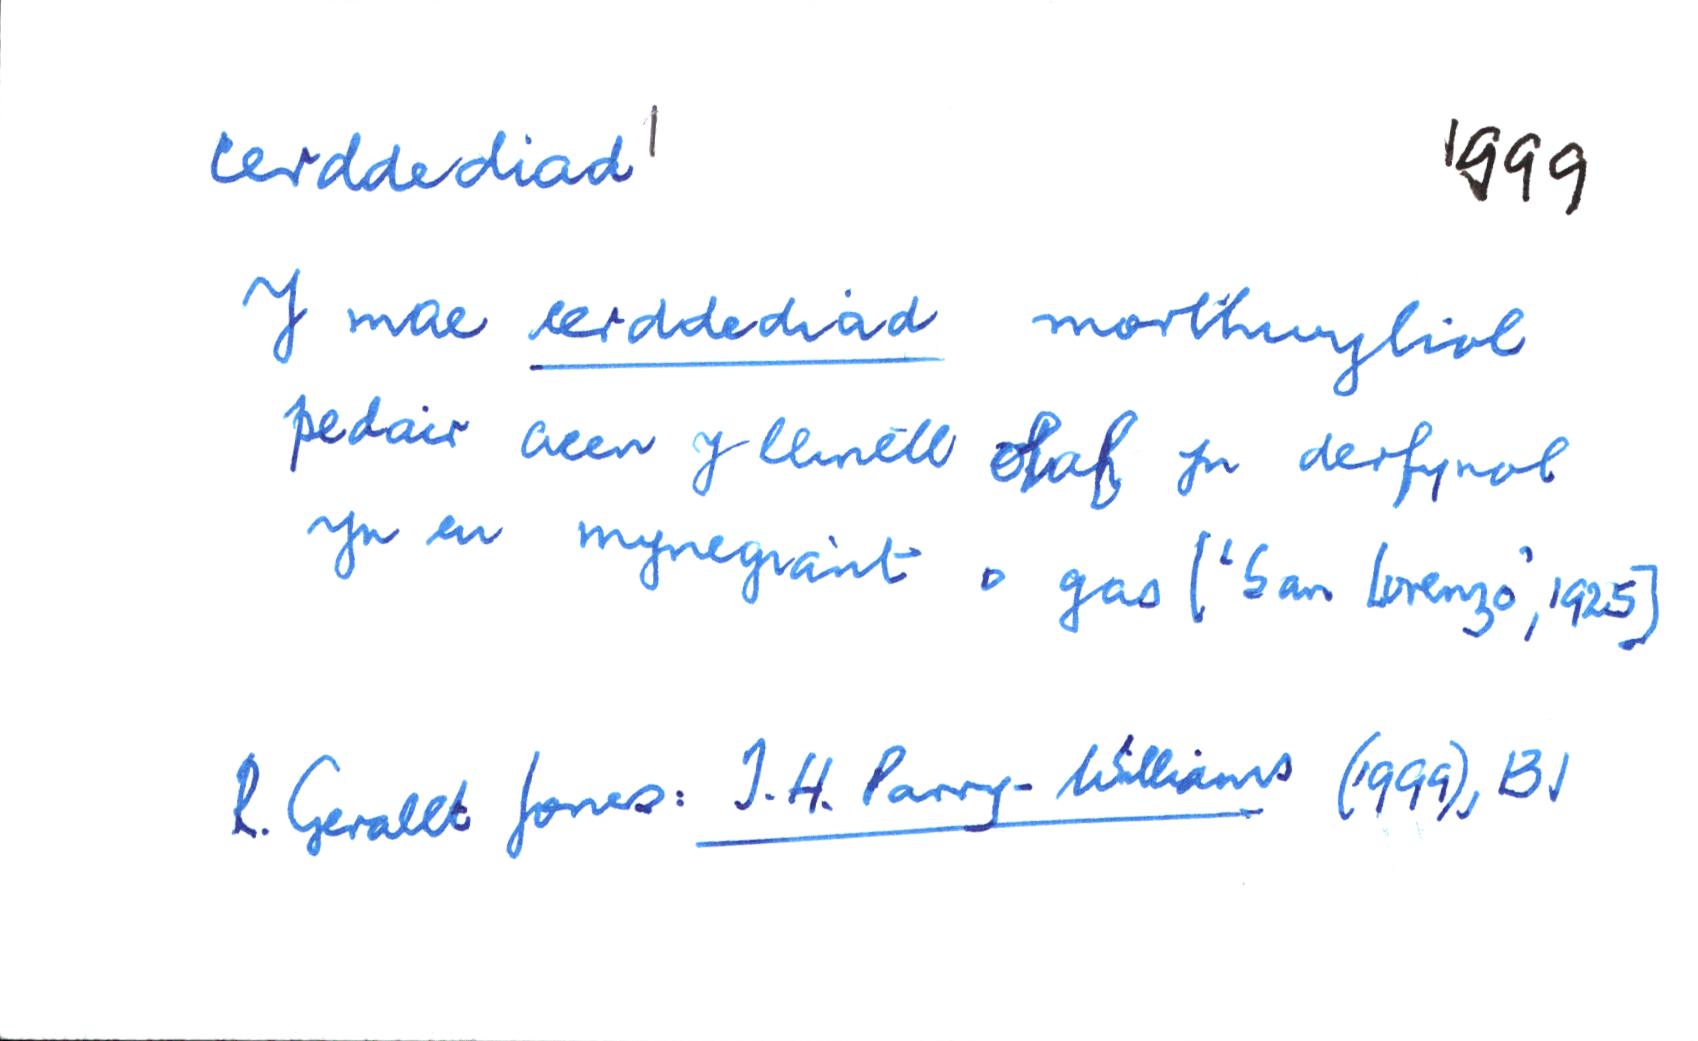 cerddediad¹ 1999
Y mae cerddediad morthwyliol
pedair acen y llinell olaf yn derfynol
yn eu mynegiant o gas ['San Lorenzo', 1925]
R. Gerallt Jones: T.H. Parry-Williams (1999), 131